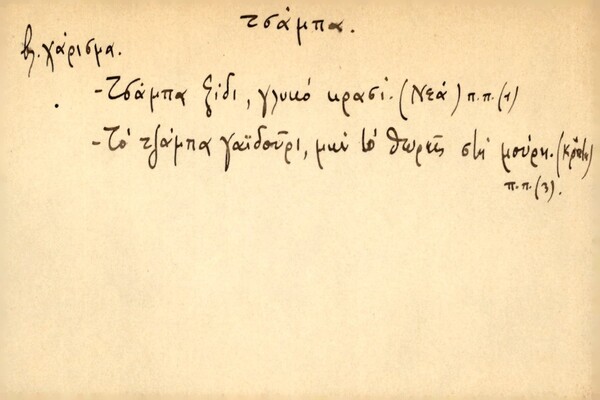 τσάμπα.
βλ. χάρισμα.
-Τσάμπα ξίδι, γλυκό κρασί. (Νεά) π.π. (1)
-Τό τζάμπα γαϊδοῦρι, μήν τό θωρῆς στή μούρη. (Κρήτη)
π.π. (3).